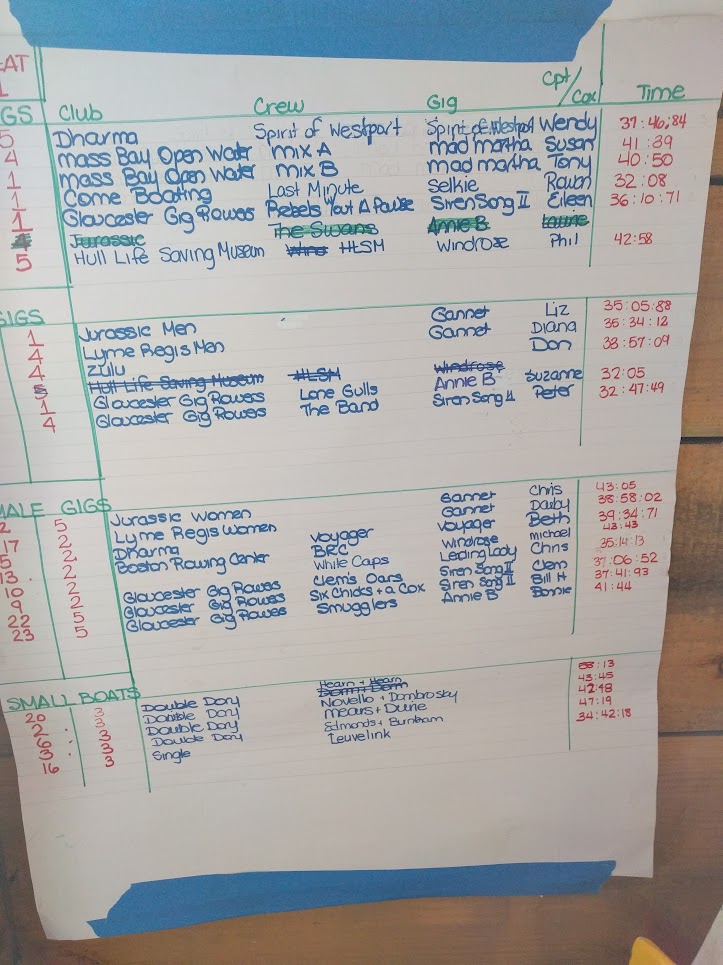 AT
GS Club Crew Gig Cpt/Cox Time
5 Dharma Spirit of Westport Spirit of Westport Wendy 37:46,84
4 Mass Bay Open Water MIX A mad martha Susan 41:39
1 Mass Bay Open Water MIX B mad martha Tony 40:50
1 Come Boating Last Minute Selkie Rowan 32:08
1 Gloucester Gig Rowers Rebels Siren Song II Eileen 36:10:71
4 Jurassic The Swans Annie B Laurie
5 Hull Life Saving Museum HLSM Windrose Phil 42:58
GIGS
1 Jurassic Men Gannet Liz 35:05:88
4 Lyme Regis Men Gannet Diana 35:34:12
4 Zulu Don 38:57:09
5 Hull Life Saving Museum HLSM Windrose
1 Gloucester Gig Rowers Lone Gulls Annie B Suzanne 32:05
4 Gloucester Gig Rowers The Band Siren Song II Peter 32:47:49
MALE GIGS
2 5 Jurassic Women Gannet Chris 43:05
17 2 Lyme Regis Women Gannet Darby 38:58:02
5 2 Dharma Voyager Voyager Beth 39:34:71
13. 2 Boston Rowing Center BRC Windrose michael 43:43
10 2 While Caps Leading Lady Chris 35:14:13
9 2 Gloucester Gig Rowers Clem's Oars Siren Song II Clem 37:06:52
22 5 Gloucester Gig Rowers Six Chicks + a Cox Siren Song II Bill H 37:41:93
23 5 Gloucester Gig Rowers Smugglers Annie B Bonnie 41:44
SMALL BOATS
20 3 Double Dory Hearn + Hearn :13
2 3 Double Dory Novello + Dombrosky 43:45
6 3 Double Dory Mears + Dune 42:48
3 3 Double Dory Edmonds + Burnham 47:19
16 3 Single Leuvelink 34:42:18